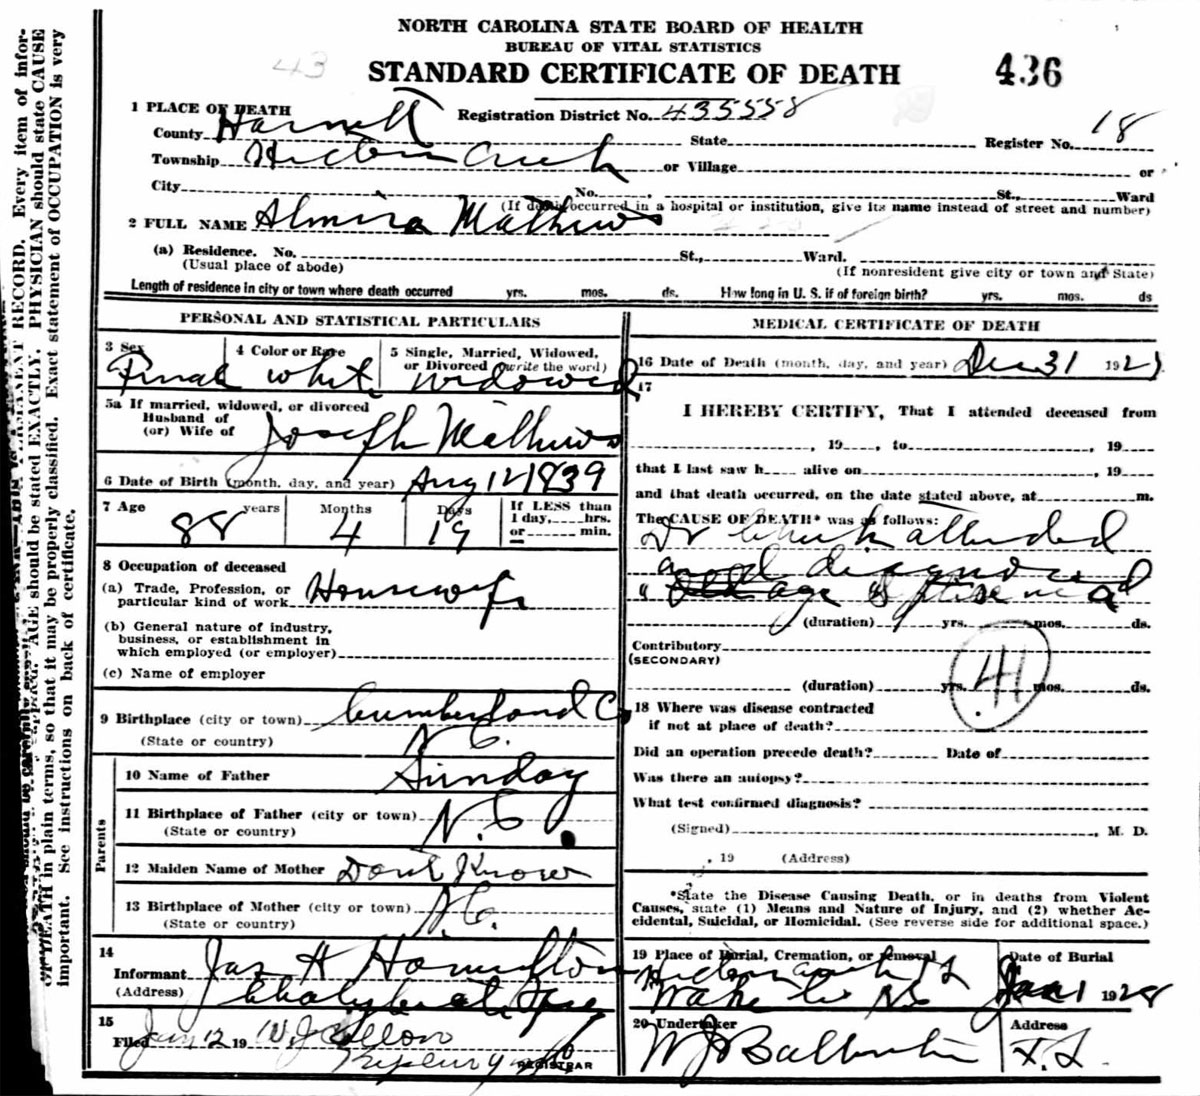 NORTH CAROLINA STATE BOARD OF HEALTH
BUREAU OF VITAL STATISTICS
43
STANDARD CERTIFICATE OF DEATH
436
1 PLACE OF DEATH
Registration District No. 435558
County Harnett State Register No. 18
Township Hectors Creek or Village or
City No. St., Ward
(If death occurred in a hospital or institution, give its name instead of street and number)
2 FULL NAME Almira Mathews
(a) Residence. No. St., Ward.
(Usual place of abode) (If nonresident give city or town and State)
Length of residence in city or town where death occurred yrs. mos. ds. How long in U. S. if of foreign birth? yrs. mos. ds
PERSONAL AND STATISTICAL PARTICULARS
3 Sex 4 Color or Race 5 Single, Married, Widowed,
or Divorced (write the word)
Female white widowed
5a If married, widowed, or divorced
Husband of
(or) Wife of Joseph Mathews
6 Date of Birth (month, day, and year) Aug 12 1839
7 Age years Months Days If LESS than
1 day, hrs.
or min.
88 4 19
8 Occupation of deceased
(a) Trade, Profession, or
particular kind of work Housewife
(b) General nature of industry,
business, or establishment in
which employed (or employer)
(c) Name of employer
9 Birthplace (city or town) Cumberland Co
(State or country) N. C.
Parents
10 Name of Father Sunday
11 Birthplace of Father (city or town) N. C.
(State or country)
12 Maiden Name of Mother Dont Know
13 Birthplace of Mother (city or town) N. C.
(State or country)
14
Informant Jas H Hamilton
(Address) Chalybeate Spgs
15
Filed Jan 12 19 W J
REGISTRAR
MEDICAL CERTIFICATE OF DEATH
16 Date of Death (month, day, and year) Dec 31 1927
17
I HEREBY CERTIFY, That I attended deceased from
, 19 , to , 19
that I last saw h alive on , 19
and that death occurred, on the date stated above, at m.
The CAUSE OF DEATH* was as follows:
Dr attended
and diagnosed
" age
(duration) yrs. mos. ds.
Contributory
(SECONDARY)
41
(duration) yrs. mos. ds.
18 Where was disease contracted
if not at place of death?
Did an operation precede death? Date of
Was there an autopsy?
What test confirmed diagnosis?
(Signed) , M. D.
, 19 (Address)
*State the Disease Causing Death, or in deaths from Violent
Causes, state (1) Means and Nature of Injury, and (2) whether Ac-
cidental, Suicidal, or Homicidal. (See reverse side for additional space.)
19 Place of Burial, Cremation, or removal Date of Burial
Wake Co NC Jan 1 1928
20 Undertaker Address
W J Ballentine
PERMANENT RECORD. Every item of infor-
AGE should be stated EXACTLY. PHYSICIAN should state CAUSE
OF DEATH in plain terms, so that it may be properly classified. Exact statement of OCCUPATION is very
important. See instructions on back of certificate.